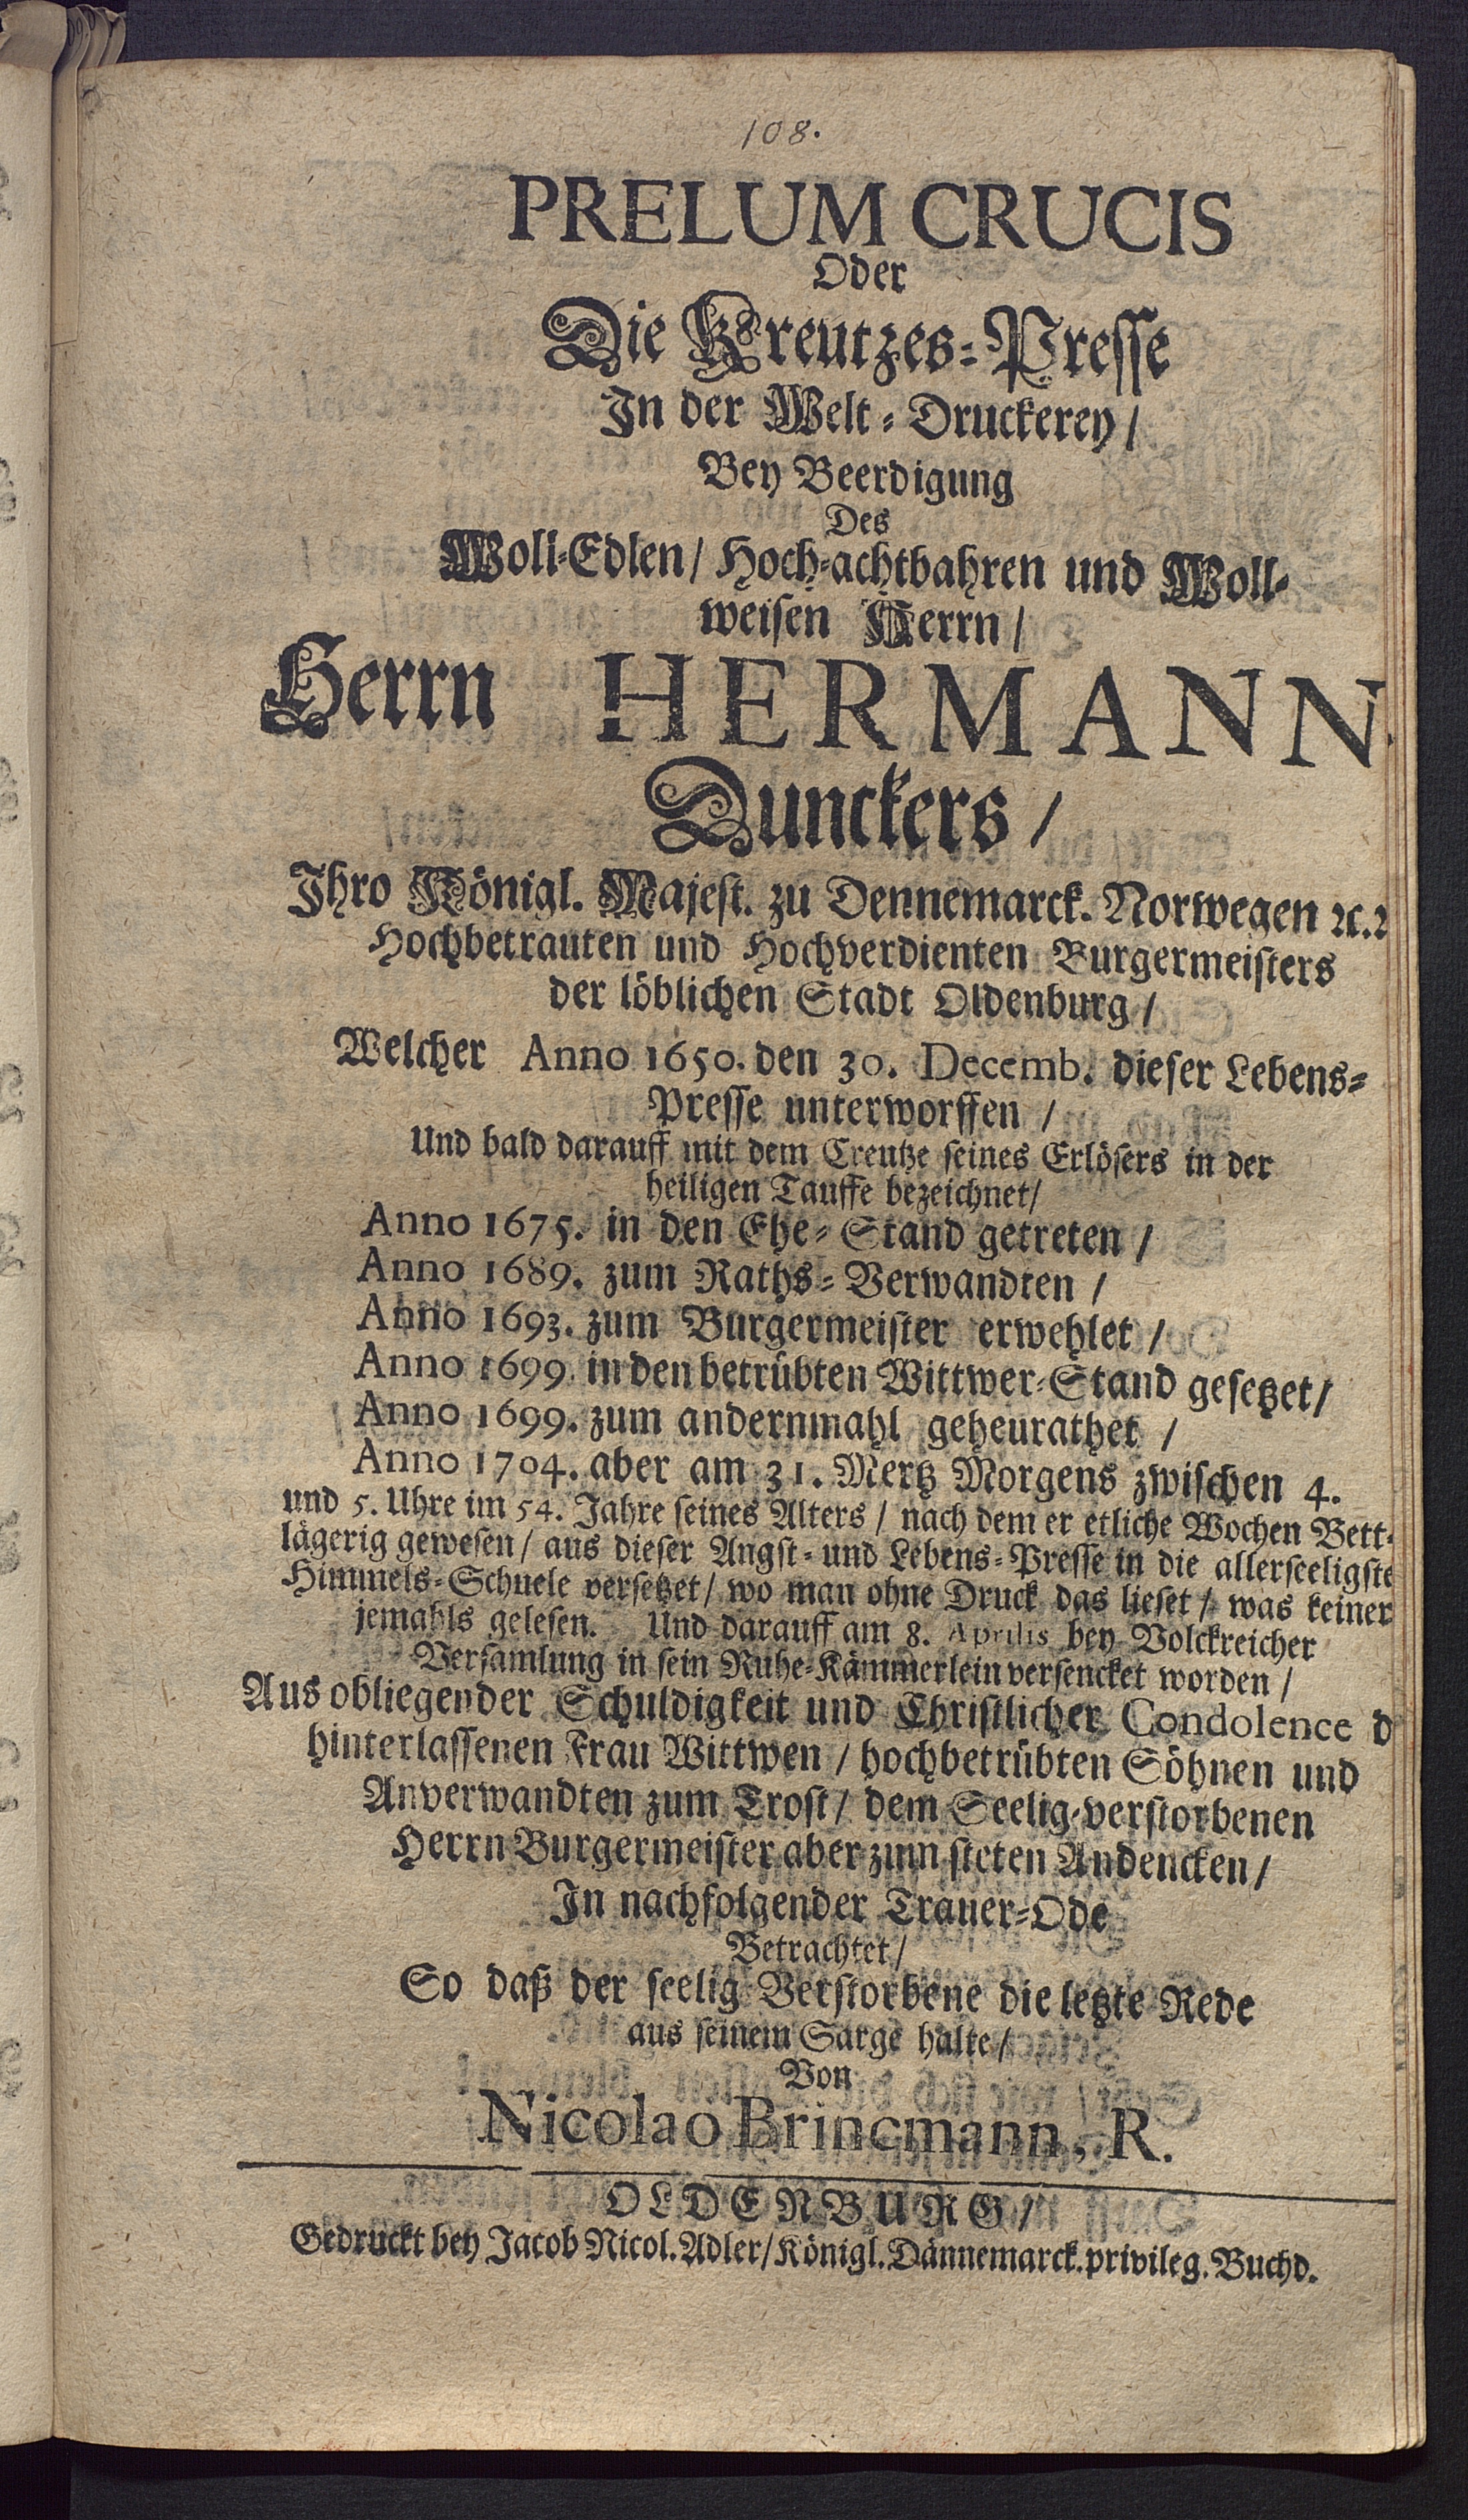 108.
PRELUM CRUCIS
Oder
Die Kreutzes-Presse
In der Welt-Druckerey /
Bey Beerdigung
Des
Woll-Edlen / Hoch-achtbahren und Woll-
weisen Herrn /
Herrn HERMANN
Dunckers /
Ihro Königl. Majest. zu Dennemarck. Norwegen ꝛc.
Hochbetrauten und Hochverdienten Burgermeisters
der löblichen Stadt Oldenburg /
Welcher Anno 1650. den 30. Decemb. dieser Lebens-
Presse unterworffen /
Und bald darauff mit dem Creutze seines Erlösers in der
heiligen Tauffe bezeichnet /
Anno 1675. in den Ehe-Stand getreten /
Anno 1689. zum Raths-Verwandten /
Anno 1693. zum Burgermeister erwehlet /
Anno 1699. in den betrübten Wittwer-Stand gesetzet /
Anno 1699. zum andernmahl geheurathet /
Anno 1704. aber am 31. Mertz Morgens zwischen 4.
und 5. Uhre im 54. Jahre seines Alters / nach dem er etliche Wochen Bett-
lägerig gewesen / aus dieser Angst- und Lebens-Presse in die allerseeligste
Himmels-Schuele versetzet / wo man ohne Druck das lieset / was keiner
jemahls gelesen. Und darauff am 8. Aprilis bey Volckreicher
Versamlung in sein Ruhe-Kämmerlein versencket worden /
Aus obliegender Schuldigkeit und Christlicher Condolence d
hinterlassenen Frau Wittwen / hochbetrübten Söhnen und
Anverwandten zum Trost / dem Seelig-verstorbenen
Herrn Burgermeister aber zum steten Andencken /
In nachfolgender Trauer-Ode
Betrachtet /
So daß der seelig Verstorbene die letzte Rede
aus seinem Sarge halte /
Von
Nicolao Brincmann, R.
OLDENBURG /
Gedruckt bey Jacob Nicol. Adler / Königl. Dännemarck. privileg. Buchd.